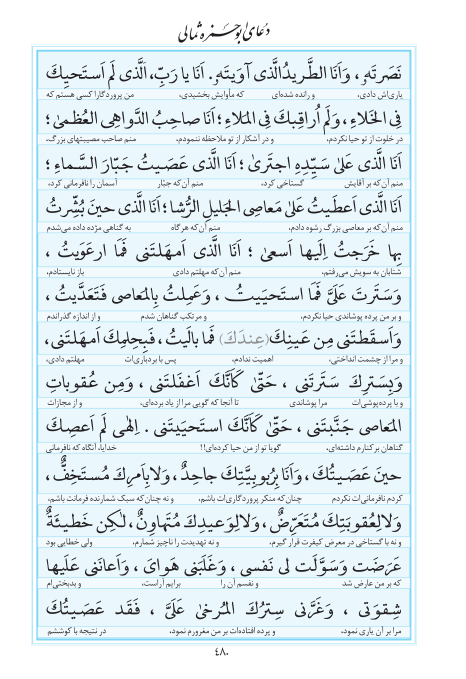 دعای ابوحمزه ثمالی
نَصَرتَهُ، وَاَنَا الطَّریدُ الَّذی آوَیتَهُ. اَنَا یا رَبِّ، اَلَّذی لَم اَستَحیِکَ
یاری‌اش دادی، و رانده شده‌ای که مأوایش بخشیدی، من پروردگارا کسی هستم که
فِی الخَلاءِ، وَلَم اُراقِبکَ فِی المَلاءِ؛ اَنَا صاحِبُ الدَّواهِی العُظمىٰ؛
در خلوت از تو حیا نکردم، و در آشکار از تو ملاحظه ننمودم، منم صاحب مصیبتهای بزرگ،
اَنَا الَّذی عَلىٰ سَیِّدِهِ اجتَرىٰ؛ اَنَا الَّذی عَصَیتُ جَبّارَ السَّماءِ؛
منم آن‌که بر آقایش گستاخی کرد، منم آن‌که جبّار آسمان را نافرمانی کرد،
اَنَا الَّذی اَعطَیتُ عَلىٰ مَعاصِی الجَلیلِ الرُّشا؛ اَنَا الَّذی حینَ بُشِّرتُ
منم آن‌که بر معاصی بزرگ رشوه دادم، منم آن‌که هرگاه به گناهی مژده داده می‌شدم
بِها خَرَجتُ اِلَیها اَسعىٰ؛ اَنَا الَّذی اَمهَلتَنی فَمَا ارعَوَیتُ،
شتابان به سویش می‌رفتم، منم آن‌که مهلتم دادی باز نایستادم،
وَسَتَرتَ عَلَیَّ فَمَا استَحیَیتُ، وَعَمِلتُ بِالمَعاصی فَتَعَدَّیتُ،
و بر من پرده پوشاندی حیا نکردم، و مرتکب گناهان شدم و از اندازه گذراندم
وَاَسقَطتَنی مِن عَینِکَ (عِندَکَ) فَما بالَیتُ، فَبِحِلمِکَ اَمهَلتَنی،
و مرا از چشمت انداختی، اهمیت ندادم، پس با بردباری‌ات مهلتم دادی،
وَبِسِترِکَ سَتَرتَنی، حَتّىٰ کَاَنَّکَ اَغفَلتَنی، وَمِن عُقوباتِ
و با پرده‌پوشی‌ات مرا پوشاندی تا آنجا که گویی مرا از یاد برده‌ای، و از مجازات
المَعاصی جَنَّبتَنی، حَتّىٰ کَاَنَّکَ استَحیَیتَنی. اِلٰهی لَم اَعصِکَ
گناهان برکنارم داشته‌ای، گویا تو از من حیا کرده‌ای!! خدایا، آنگاه که نافرمانی
حینَ عَصَیتُکَ، وَاَنَا بِرُبوبِیَّتِکَ جاحِدٌ، وَلا بِاَمرِکَ مُستَخِفٌّ،
کردم نافرمانی‌ات نکردم چنان‌که منکر پروردگاری‌ات باشم، و نه چنان‌که سبک شمارنده فرمانت باشم،
وَلا لِعُقوبَتِکَ مُتَعَرِّضٌ، وَلا لِوَعیدِکَ مُتَهاوِنٌ، لٰکِن خَطیئَةٌ
و نه با گستاخی در معرض کیفرت قرار گیرم، و نه تهدیدت را ناچیز شمارم، ولی خطایی بود
عَرَضَت وَسَوَّلَت لی نَفسی، وَغَلَبَنی هَوایَ، وَاَعانَنی عَلَیها
که بر من عارض شد و نفسم آن را برایم آراست، و بدبختی‌ام
شِقوَتی، وَغَرَّنی سِترُکَ المُرخىٰ عَلَیَّ، فَقَد عَصَیتُکَ
مرا بر آن یاری نمود، و پرده افتاده‌ات بر من مغرورم نمود، در نتیجه با کوششم
٤٨٠